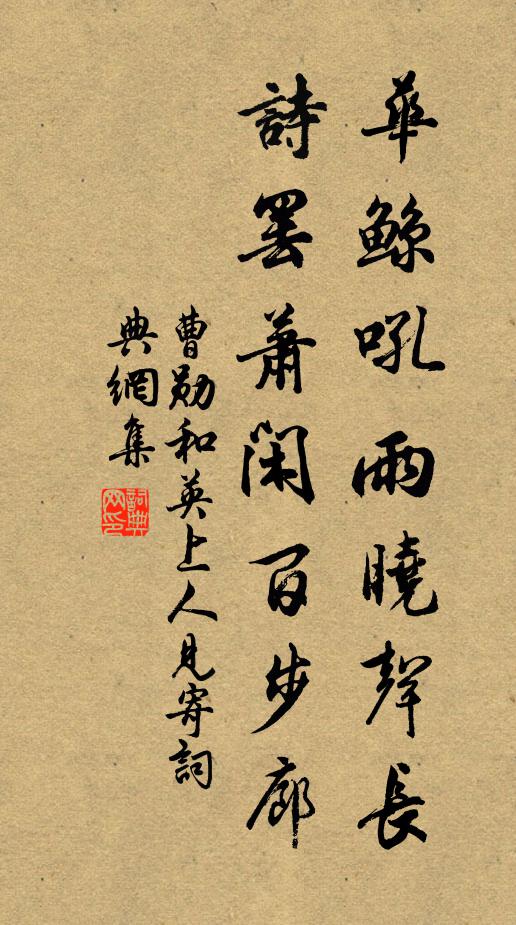 華鯨吼雨曉聲長
詩罷蕭閑百步廊
曹勛和英上人見寄詞
典網集
詞典網印